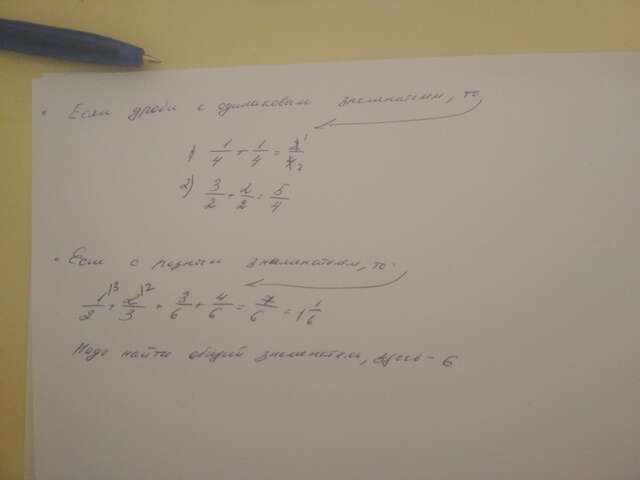 • Если дроби с одинаковым знаменателем, то
1) 1/4 + 1/4 = 2̸ 1/4̸ 2
2) 3/2 + 2/2 = 5/4
• Если с разным знаменателем, то:
1/2 |3 + 2/3 |2 = 3/6 + 4/6 = 7/6 = 1 1/6
Надо найти общий знаменатель, здесь - 6